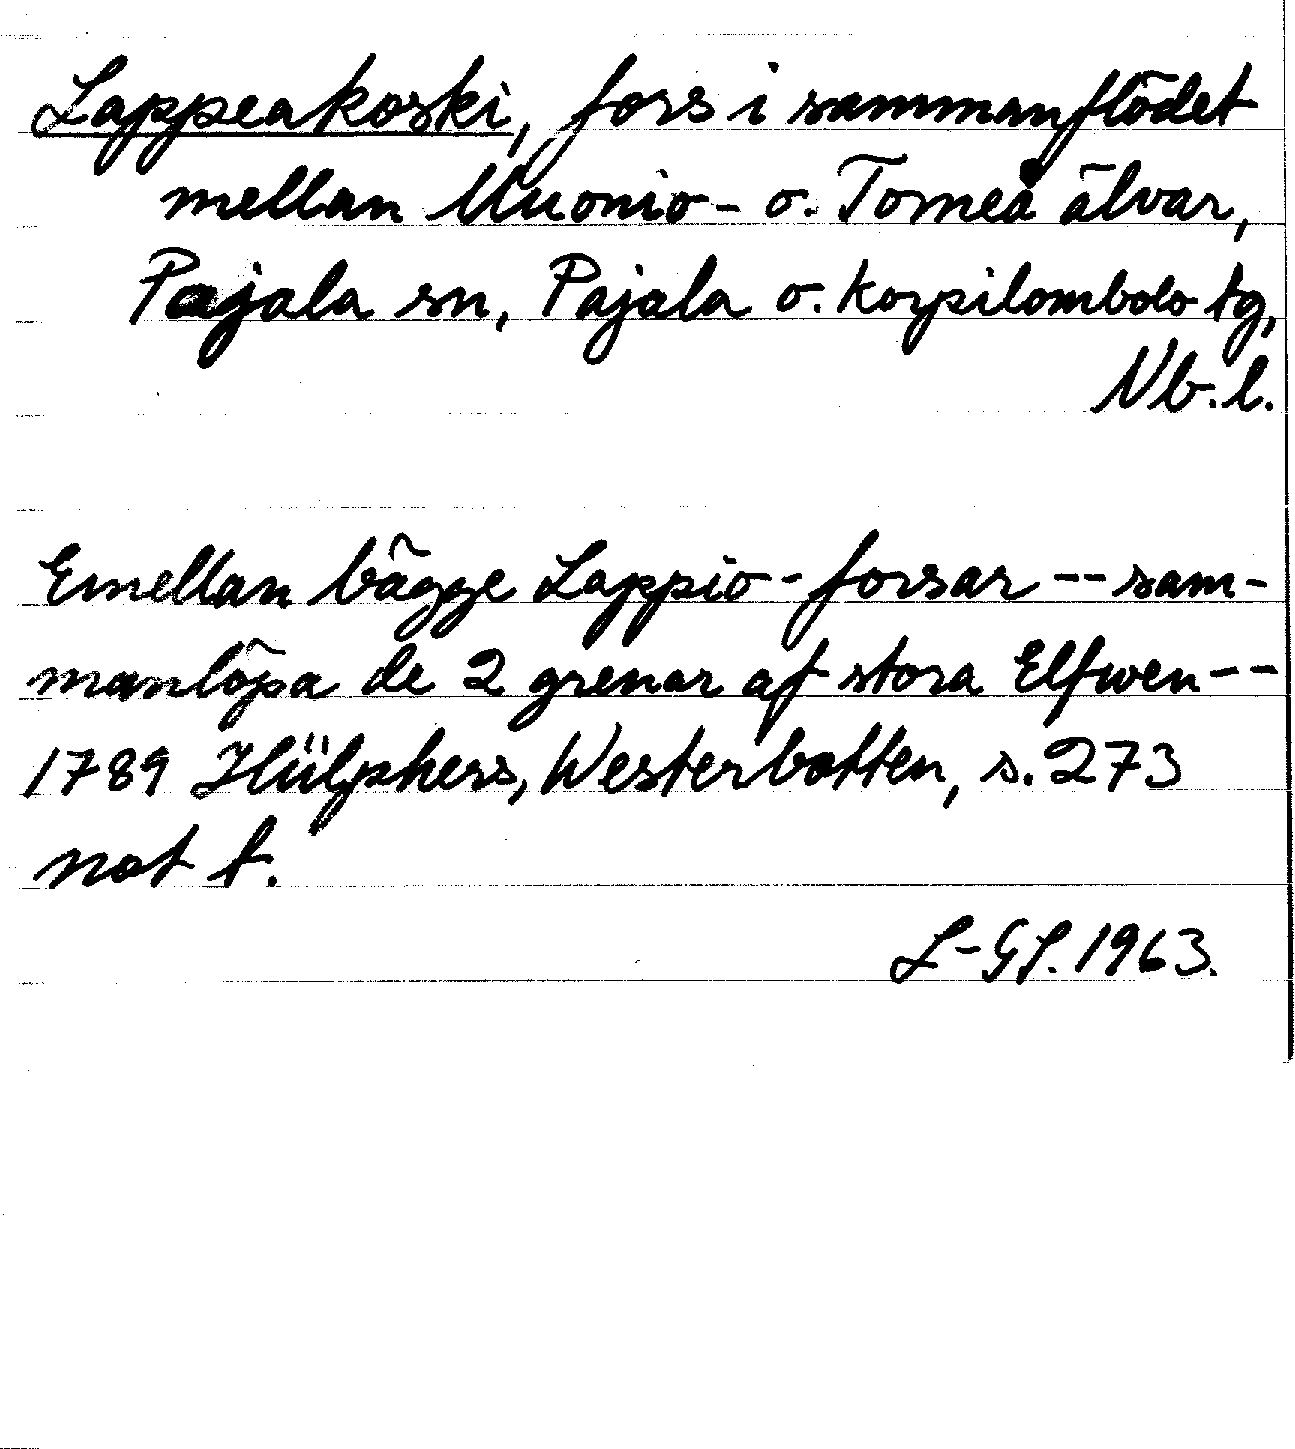 Lappeakoski, fors i sammanflödet
mellan Muonio- o. Torneå älvar,
Pajala sn, Pajala o. Korpilombolo tg,
Nb. l.
Emellan bägge Lappio-forsar -- sam-
manlöpa de 2 grenar af stora Elfwen--
1789 Hülphers, Westerbotten, s. 273
not f.
L-GL. 1963.